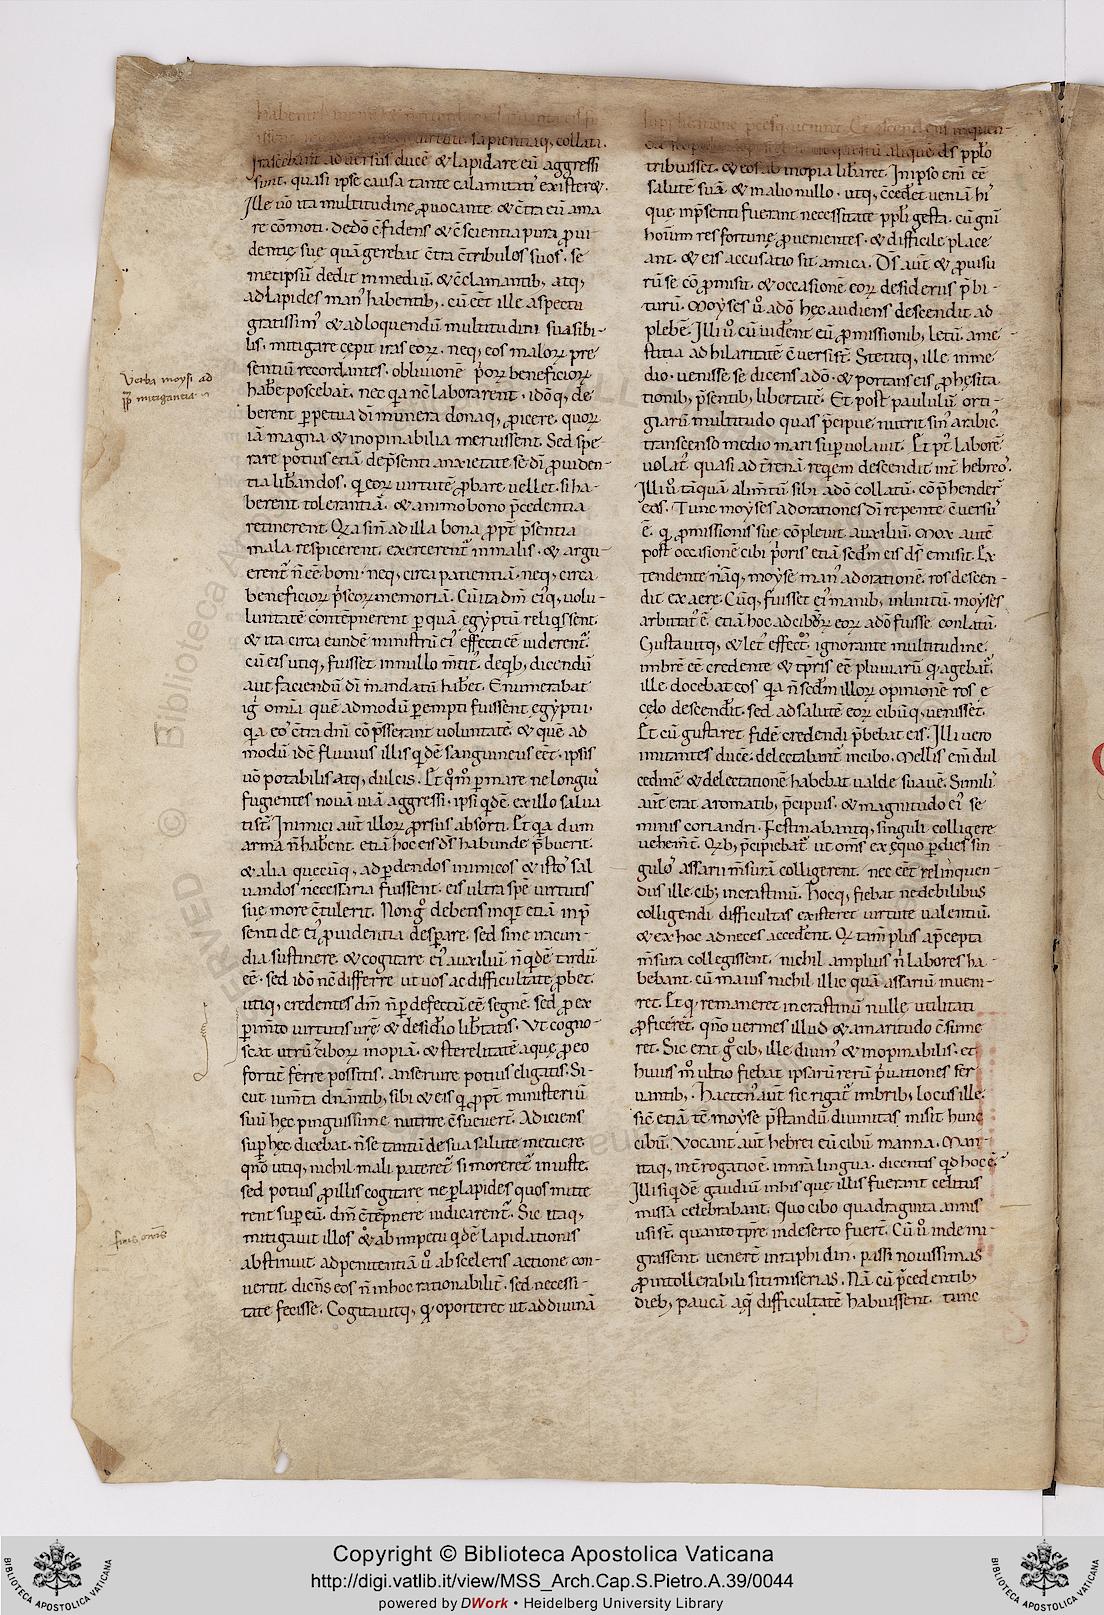 Verba moysi ad
pp̄l mitigantia
sapientiaq, collata.
Irascebant adversus ducē & lapidare eū aggressi
sunt. quasi ipse causa tante calamitatis existeret.
Ille ūo ita multitudine ꝓvocante & c̄tra eū ama
re cōmoti. dedō c̄fidens & c̄scientia pura ꝓvi
dentię suę quā gerebat c̄tra c̄tribulos suos. se
metipsū dedit in mediū. & c̄clamantib, atq,
ad lapides man' habentib,. cū eēt ille aspectu
gratissim' & ad loquendū multitudini suasibi-
lis. mitigare cępit iras eoꝝ. neq, eos maloꝝ prę
sentiū recordantes. oblivionē p̄orꝝ beneficiorꝝ
hab̄e poscebat. nec qa nē laborarent. idōq, de
berent perpetua dī munera donaq, ꝓicere. quorꝝ
iā magna & inopinabilia meruissent. Sed spe
rare potius etiā dep̄senti anxietate se dī ꝓviden
tia lib̄andos. qi eorꝝ virtutē ꝓbare vellet. si ha
berent tolerantiā. & animo bono p̄cedentia
retinerent. Qꝛ a sin ad illa bona ꝓpt p̄sentia
mala respicerent. exercerent' in malis. & argu
erent' n̄ eē boni. neq, circa patientiā. neq, circa
beneficiorꝝ p̄scorꝝ memoriā. Cū ita dn̄m ei'q, volu-
luntatē contēpnerent per quā egyptū reliqssent.
& ita circa eundē ministrū ei' effecti eē viderent'.
cū eis utiq, fuisset in nullo m̄tit'. deqb, dicendū
aut faciendū dī mandatū hab̄et. Enumerabat
ig' om̄ia quē admodū perempti fuissent egyptii.
qa eo' c̄tra dn̄i cōp̄sserant voluntatē. & quē ad
modū idē fluvius illis qdē sanguineus eēt. ipsis
ūo potabilis atq, dulcis. Et qm̄ per mare ne longiu'
fugientes novā viā aggressi. ipsi qdē ex illo salva
ti sn̄t. Inimici aut illorꝝ ꝓrsus absorti. Et qa dum
arma n̄ hab̄ent. etiā hoc eis d̄s habunde p̄buerit.
& alia quecūq, ad perdendos inimicos & isto' sal
vandos necessaria fuissent. eis ultra spē virtutis
suę more c̄tulerit. Non g° debetis inqt etiā in p̄
senti de ei' ꝓvidentia desperare. sed sine iracun
dia sustinere. & cogitare ei' auxiliū n̄ qdē tardū
eē. sed idō nē differre ut vos ac difficultate ꝓbet.
utiq, credentes dn̄m n̄ per defectū eē segnē. sed ꝓ ex
perim̄to virtutis vrę & desid̄io lib̄tatis. Ut cogno-
scat utrū ciborꝝ inopiā. & sterelitatē aquę ꝓ eo
fortiē ferre possitis. an servire potius eligatis. Si-
cut ium̄ta dn̄antib, sibi & eis qi ꝓpt ministeriū
suū hęc pinguissime nutrire c̄suevert. Adiciens
sup hęc dicebat. n̄ se tantū de sua salute metuere
qn̄o utiq, nichil mali pateret' si moreret' iniuste.
sed potius ꝓ illis cogitare ne per lapides quos mitte
rent sup eū. dn̄m c̄tēpnere iudicarent'. Sic itaq,
mitigavit illos & ab impetu qdē lapidationis
abstinuit. ad penitentiā ū ab sceleris actione con-
vertit. dicens eos n̄ in hoc rationabiliū. sed necessi-
tate fecisse. Cogitavitq, qi oporteret ut ad divinā
finis oronis
supplicatione precesq, veniret. Et ascendens inquen-
tribuisset. & eos ab inopia lib̄aret. In ipso eni eē
salutē suā & in alio nullo. utq, c̄cedet veniā hi'
que in p̄senti fuerant necessitate ppli gesta. cū gn̄i
hoīum res fortunę ꝓvenientes. & difficile place
ant. & eis accusatio sit amica. D̄s aut & ꝓvisu
rū se cō ꝓmisit. & occasionē eorꝝ desideriis p̄bi-
turū. Moyses ū adō hęc audiens descendit ad
plebē. Illi ū cū vidērent eū ꝓmissionib, letū. mē
stitia ad hilaritatē c̄versi st̄. Stetitq, ille in me
dio. venisse se dicens adō. & portans eis ꝓ hesita
tionib, p̄sentib, libertatē. Et post paululū orti-
giarū multitudo quas p̄cipue nutrit sin' arabic'.
transcenso medio mari supvolavit. Et pt laborē
volat'. quasi ad t̄renā reqem descendit int hebreo'.
Illi ū tāquā alim̄tū sibi adō collatū. cōp̄hender
eos. Tunc moyses ad orationes dī repente c̄versu'
ē. qi ꝓmissionis suę cōplevit auxiliū. Mox autē
post occasionē cibi p̄oris etiā scdm eis d̄s emisit. Ex
tendente nāq, moyse man' ad orationē. ros descen-
dit ex aere. Cūq, fuisset ei' manib, infinitū. moyses
arbitat' ē. etiā hoc ad cibōs eorꝝ adō fuisse conlatū.
Gustavitq, & let' effect'. ignorante multitudine.
imbrē eē credente. & tp̄ris eē pluviarū qi agebat'.
ille docebat eos qa n̄ scdm illorꝝ opinionē ros e
cęlo descendit. sed ad salutē eorꝝ cibūq, venisset.
Et cū gustaret fidē credendi p̄bebat eis. Illi vero
imitantes ducē. delectabant in cibo. Mellis eni dul
cedinē & delectationē habebat valde suavē. Simili'
aut erat aromatib, p̄cipuis. & magnitudo ei' se
minis coriandri. Festinabantq, singuli colligere
vehem̄t. Qrb, p̄cipiebat' ut om̄s ex equo per dies sin-
gulo' assarii m̄surā colligerent. nec eēt relinquen-
dus ille cib, in crastinū. Hocq, fiebat ne debilibus
colligendi difficultas existeret virtute valentiū.
& ex hoc ad neces accederent. Qi tam plus ap̄cepta
m̄surā collegissent. nichil amplius n̄ labores ha-
bebant. cū maius nichil illic quā assariū inveni-
ret. Et qi remaneret in crastinū nullę utilitati
ꝓficeret. qn̄o vermes illud & amaritudo c̄sume
ret. Sic erat g° cib, ille divin' & inopinabilis. et
huius m̄ ultio fiebat ipsarū rerū p̄vationes ser
vantib,. Hacten' aut sic rigat' imbrib, locus ille.
sic̄ etiā tē moyse p̄standū divinitas misit hunc
cibū. Vocant aut hebrei eū cibū manna. Man-
itaq, int̄rogatio ē. in nr̄a lingua. dicentis qd hoc ē.
Illi siqdē gaudiū in his que illis fuerant celitus
missa celebrabant. Quo cibo quadraginta annis
usi st̄. quanto tp̄re in deserto fuer̄t. Cū ū inde mi-
grassent. vener̄t in raphidin. passi novissimas
ꝓ intollerabili siti miserias. Nā cū p̄cedentib,
dieb, paucā aq difficultatē habuissent. tunc
Copyright © Biblioteca Apostolica Vaticana
http://digi.vatlib.it/view/MSS_Arch.Cap.S.Pietro.A.39/0044
powered by DWork • Heidelberg University Library